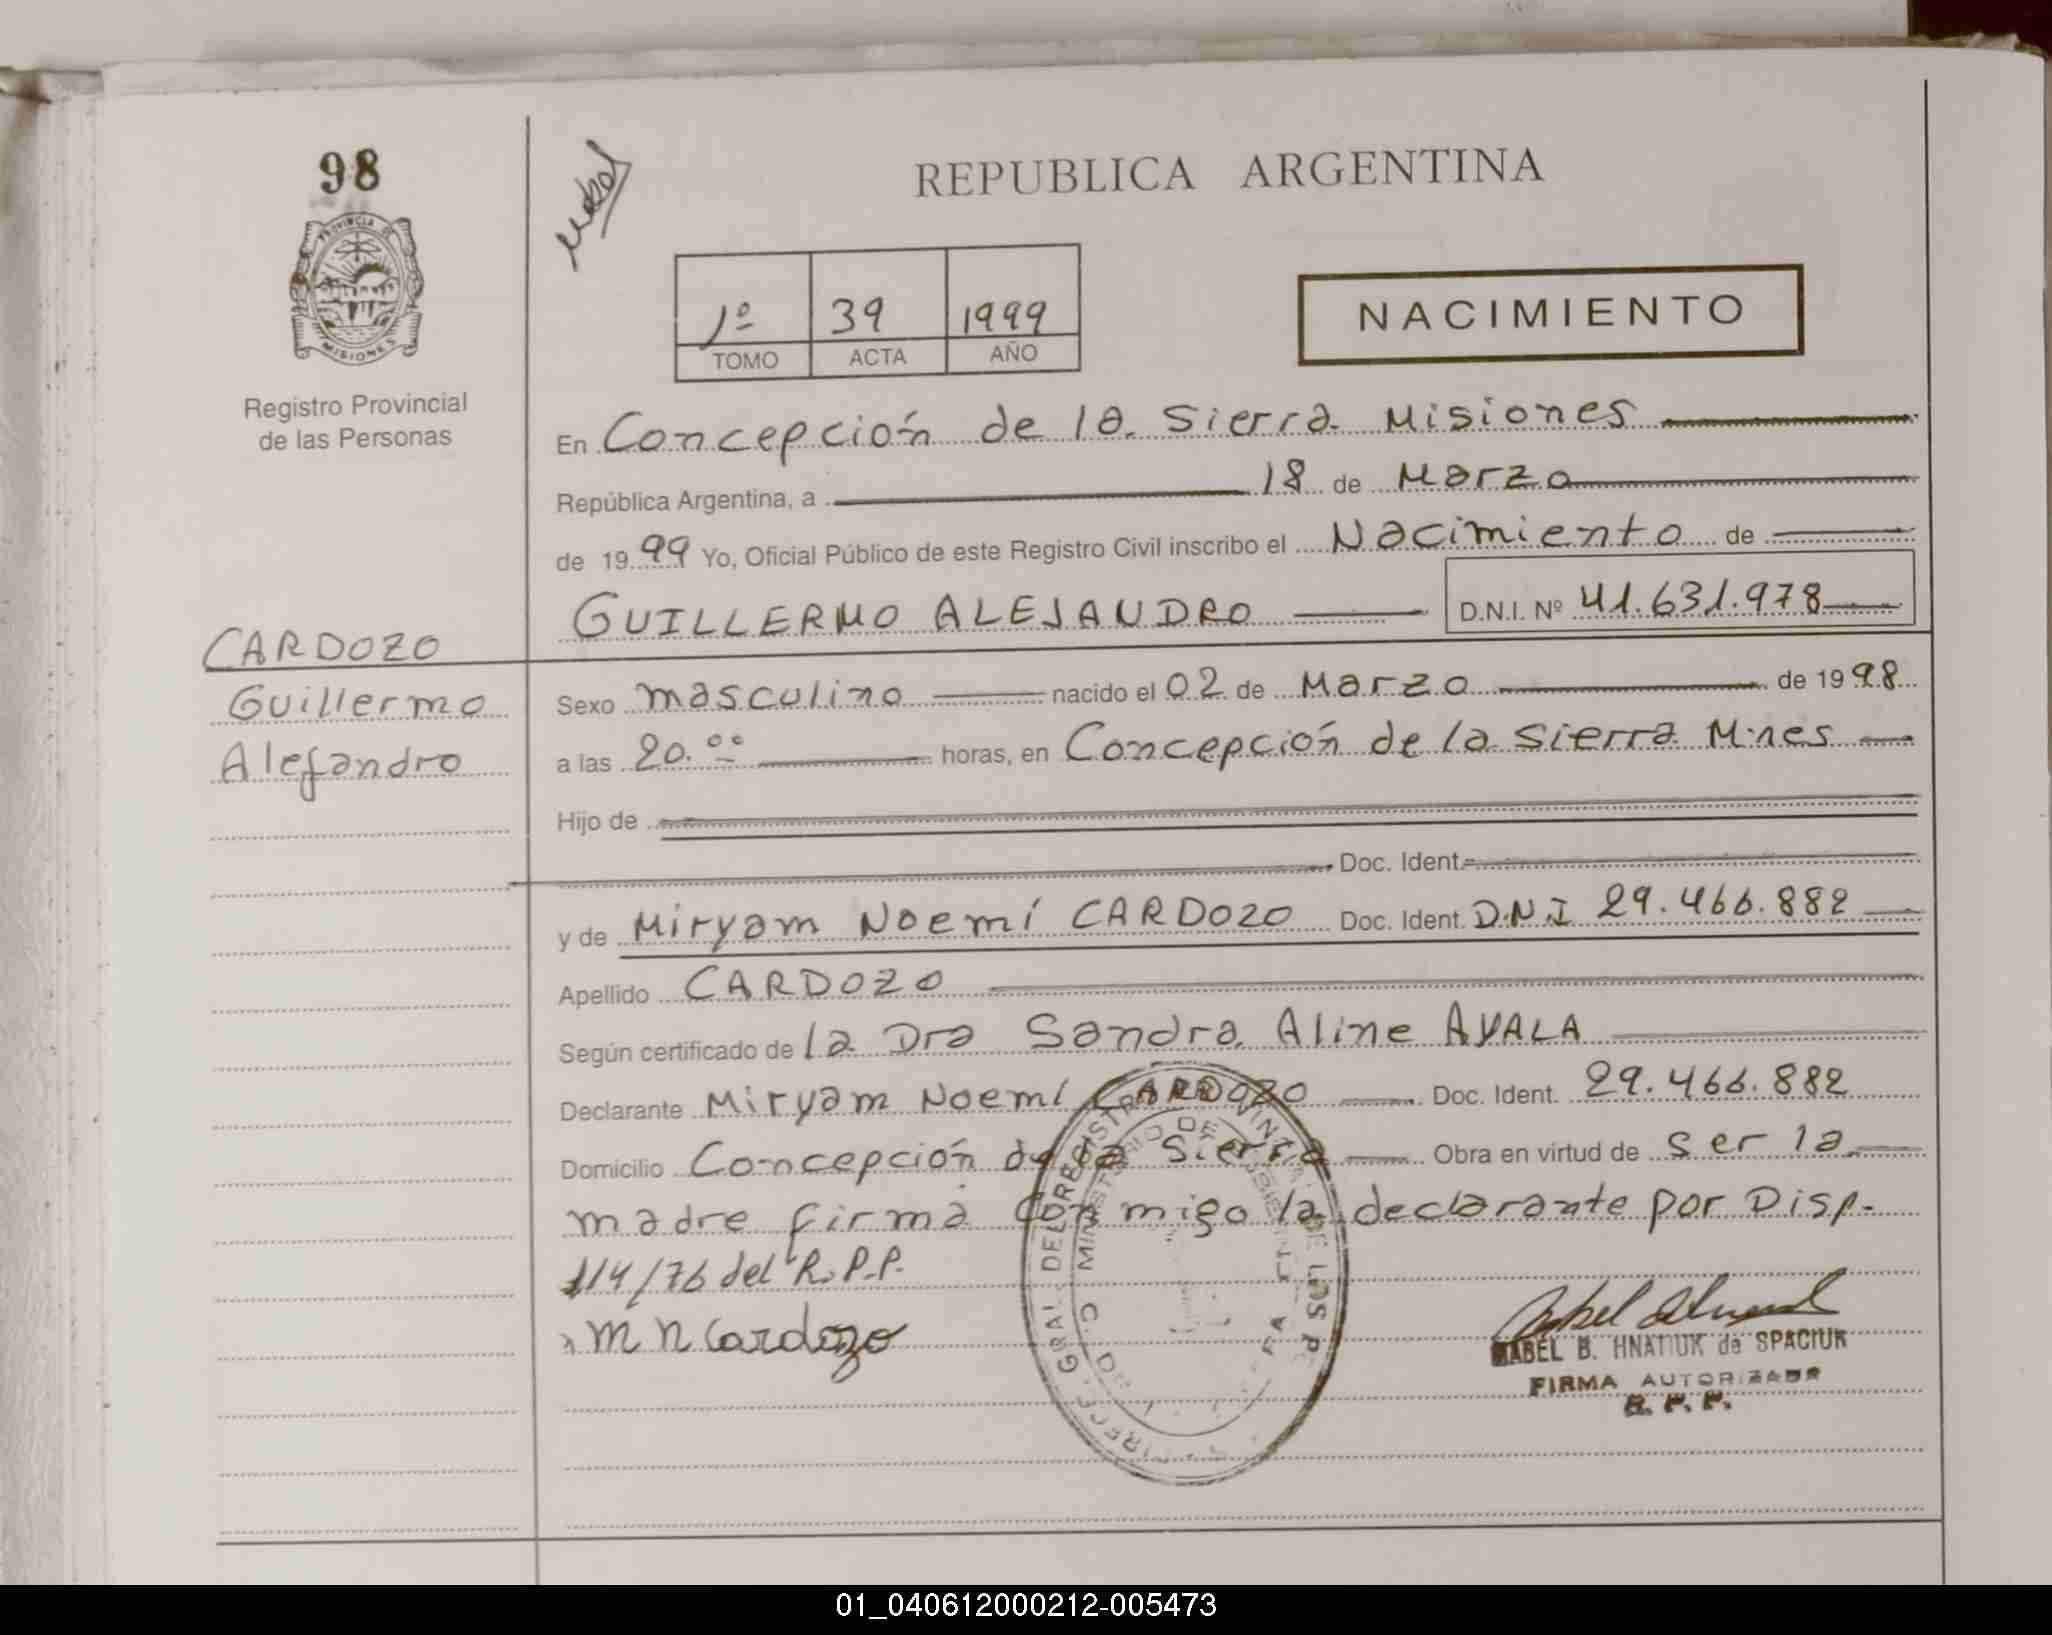 98
PROVINCIA DE
MISIONES
Registro Provincial
de las Personas
REPUBLICA ARGENTINA
1º 39 1999
TOMO ACTA AÑO
NACIMIENTO
En Concepción de la Sierra Misiones
República Argentina, a 18 de Marzo
de 19 99 Yo, Oficial Público de este Registro Civil inscribo el Nacimiento de
GUILLERMO ALEJANDRO D.N.I. Nº 41.631.978
CARDOZO
Guillermo
Alejandro
Sexo masculino nacido el 02 de Marzo de 19 98
a las 20.00 horas, en Concepción de la Sierra M·nes
Hijo de
Doc. Ident.
y de Miryam Noemí CARDOZO Doc. Ident. D.N.I 29.466.882
Apellido CARDOZO
Según certificado de la Dra Sandra Aline AYALA
Declarante Miryam Noemí CARDOZO Doc. Ident. 29.466.882
Domicilio Concepción de la Sierra Obra en virtud de ser la
madre firma con migo la declarante por Disp.
114/76 del R.P.P.
M N Cardozo
MABEL B. HNATIUK de SPACIUK
FIRMA AUTORIZADA
R. P. P.
01_040612000212-005473